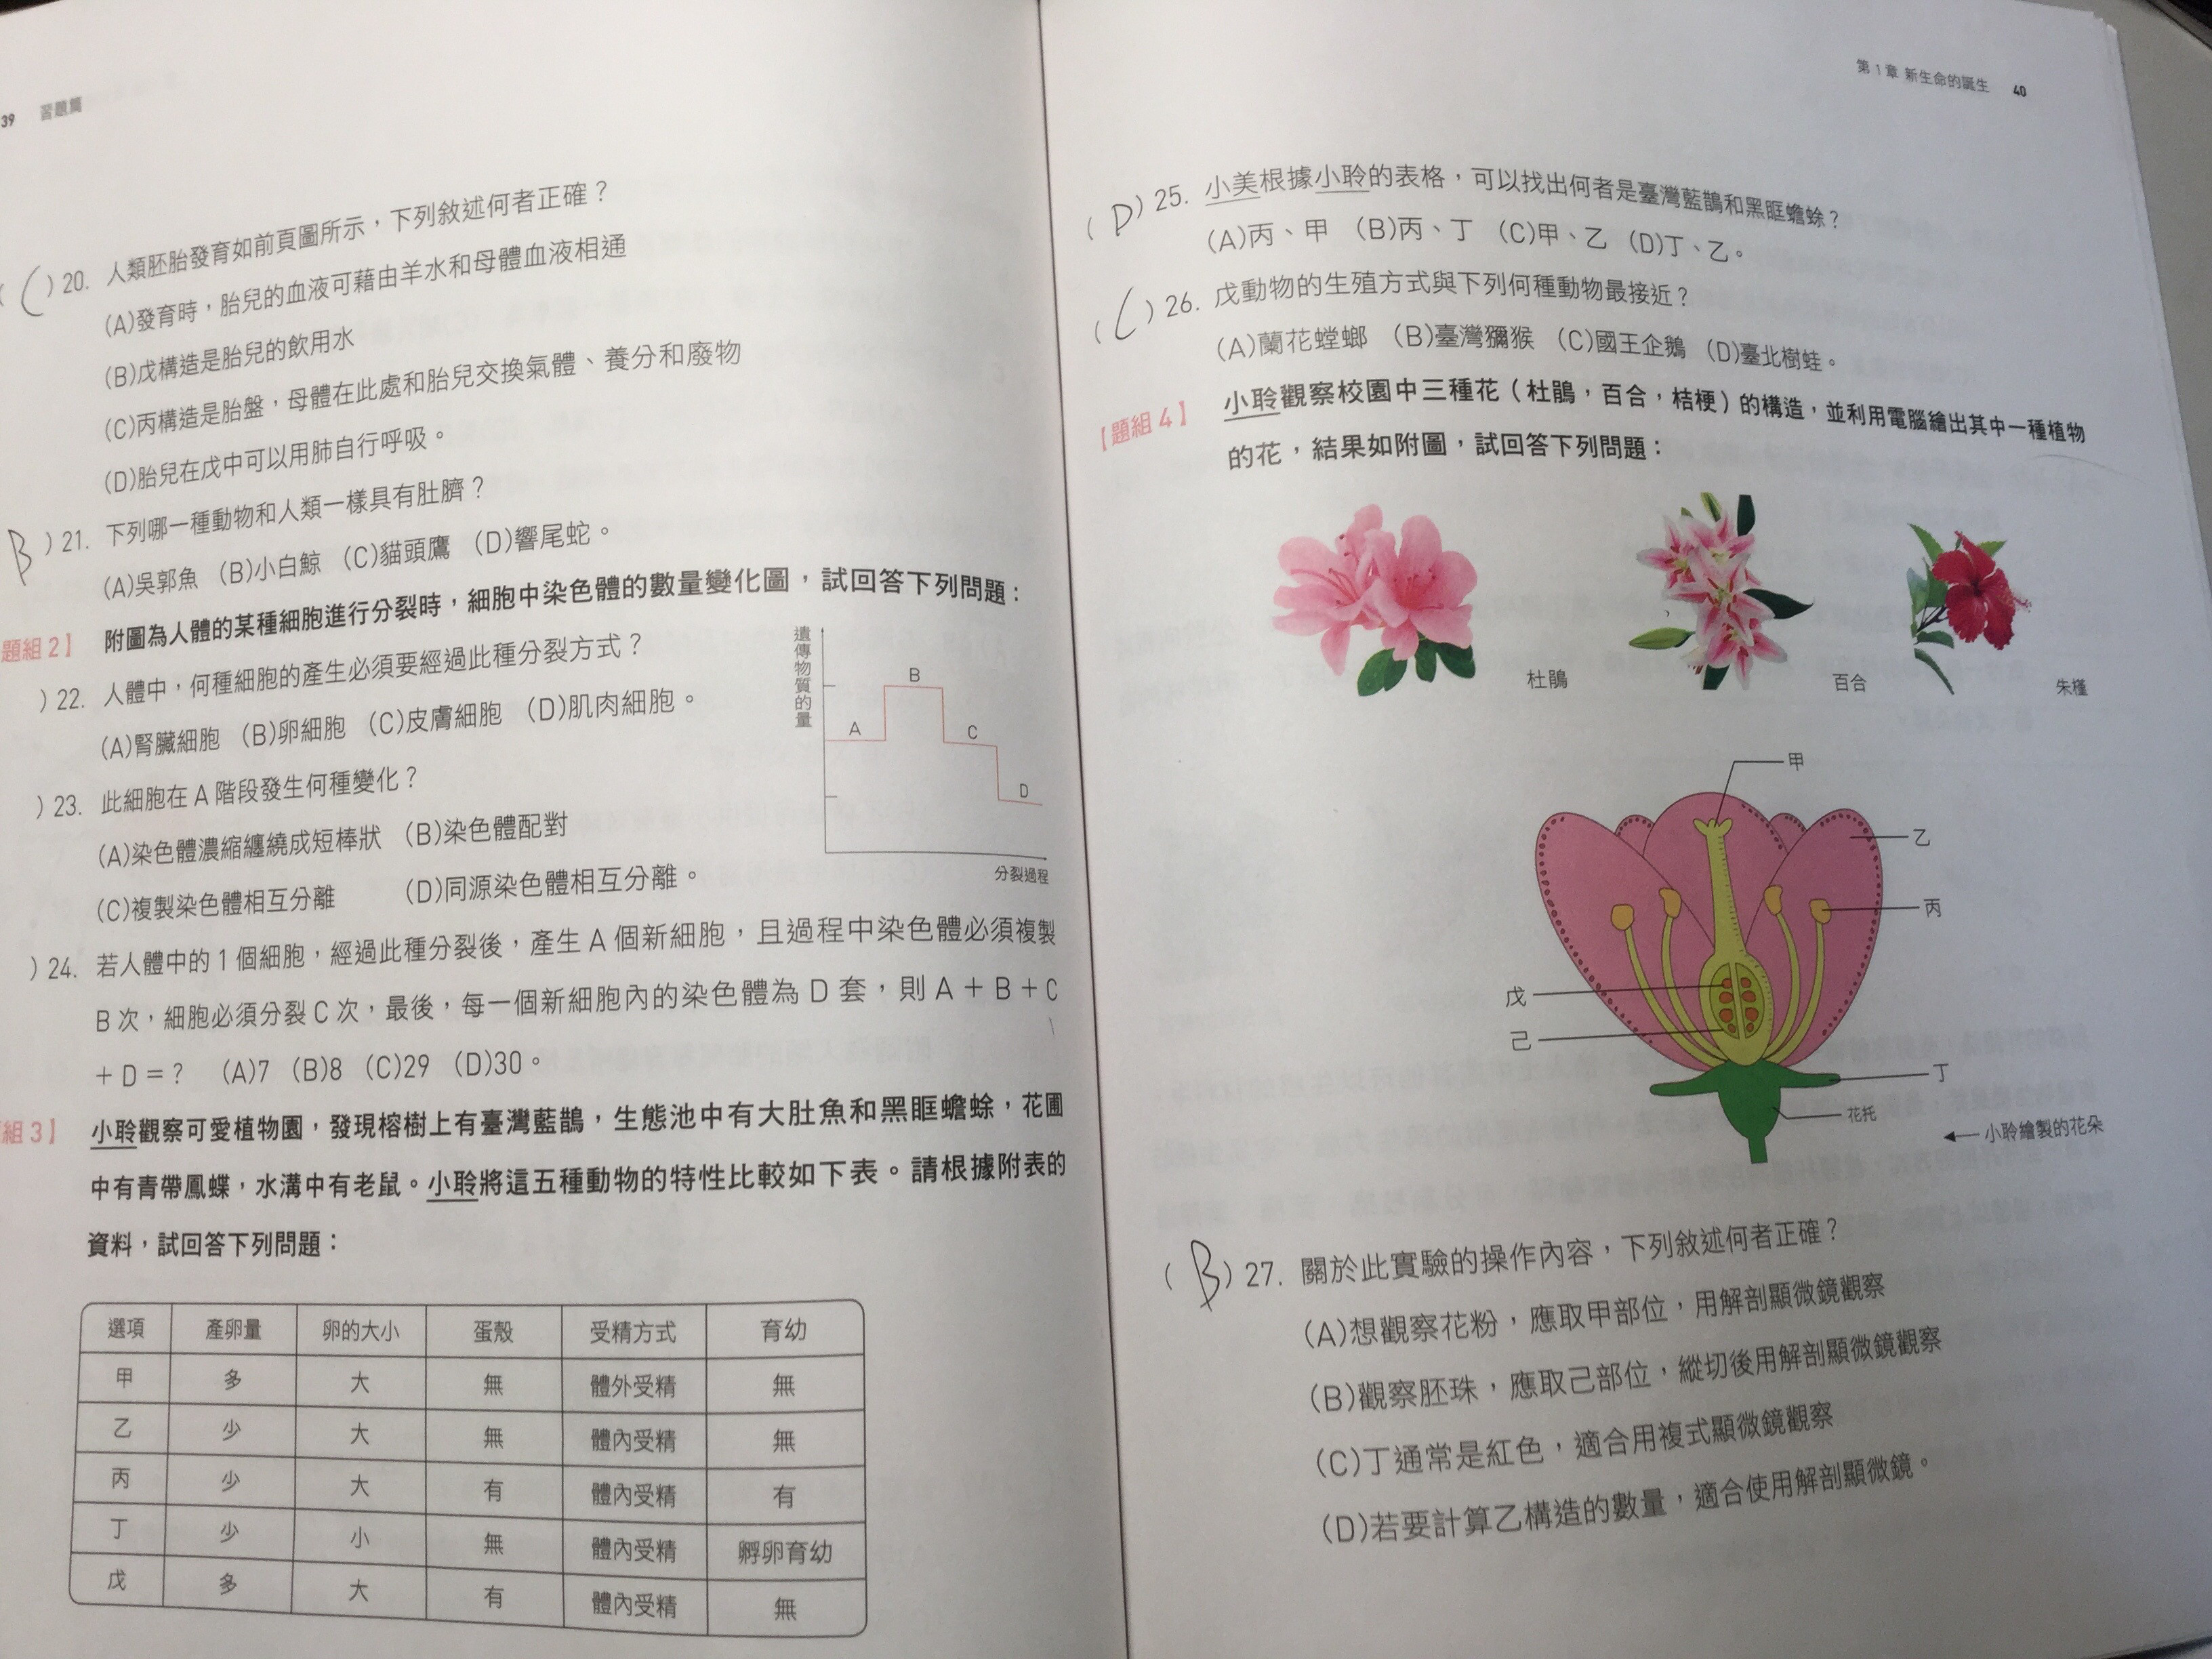 39 習題篇
(C)20. 人類胚胎發育如前頁圖所示，下列敘述何者正確？
(A)發育時，胎兒的血液可藉由羊水和母體血液相通
(B)戊構造是胎兒的飲用水
(C)丙構造是胎盤，母體在此處和胎兒交換氣體、養分和廢物
(D)胎兒在戊中可以用肺自行呼吸。
B )21. 下列哪一種動物和人類一樣具有肚臍？
(A)吳郭魚 (B)小白鯨 (C)貓頭鷹 (D)響尾蛇。
題組 2】 附圖為人體的某種細胞進行分裂時，細胞中染色體的數量變化圖，試回答下列問題：
)22. 人體中，何種細胞的產生必須要經過此種分裂方式？
(A)腎臟細胞 (B)卵細胞 (C)皮膚細胞 (D)肌肉細胞。
)23. 此細胞在 A 階段發生何種變化？
(A)染色體濃縮纏繞成短棒狀 (B)染色體配對
(C)複製染色體相互分離 (D)同源染色體相互分離。
遺傳物質的量
A
B
C
D
分裂過程
)24. 若人體中的 1 個細胞，經過此種分裂後，產生 A 個新細胞，且過程中染色體必須複製
B 次，細胞必須分裂 C 次，最後，每一個新細胞內的染色體為 D 套，則 A＋B＋C
＋D＝？ (A)7 (B)8 (C)29 (D)30。
組 3】 小聆觀察可愛植物園，發現榕樹上有臺灣藍鵲，生態池中有大肚魚和黑眶蟾蜍，花圃
中有青帶鳳蝶，水溝中有老鼠。小聆將這五種動物的特性比較如下表。請根據附表的
資料，試回答下列問題：
選項 產卵量 卵的大小 蛋殼 受精方式 育幼
甲 多 大 無 體外受精 無
乙 少 大 無 體內受精 無
丙 少 大 有 體內受精 有
丁 少 小 無 體內受精 孵卵育幼
戊 多 大 有 體內受精 無
第 1 章 新生命的誕生 40
(D)25. 小美根據小聆的表格，可以找出何者是臺灣藍鵲和黑眶蟾蜍？
(A)丙、甲 (B)丙、丁 (C)甲、乙 (D)丁、乙。
(C)26. 戊動物的生殖方式與下列何種動物最接近？
(A)蘭花螳螂 (B)臺灣獼猴 (C)國王企鵝 (D)臺北樹蛙。
【題組 4】 小聆觀察校園中三種花（杜鵑，百合，桔梗）的構造，並利用電腦繪出其中一種植物
的花，結果如附圖，試回答下列問題：
杜鵑
百合
朱槿
甲
乙
丙
戊
己
丁
花托
小聆繪製的花朵
(B)27. 關於此實驗的操作內容，下列敘述何者正確？
(A)想觀察花粉，應取甲部位，用解剖顯微鏡觀察
(B)觀察胚珠，應取己部位，縱切後用解剖顯微鏡觀察
(C)丁通常是紅色，適合用複式顯微鏡觀察
(D)若要計算乙構造的數量，適合使用解剖顯微鏡。